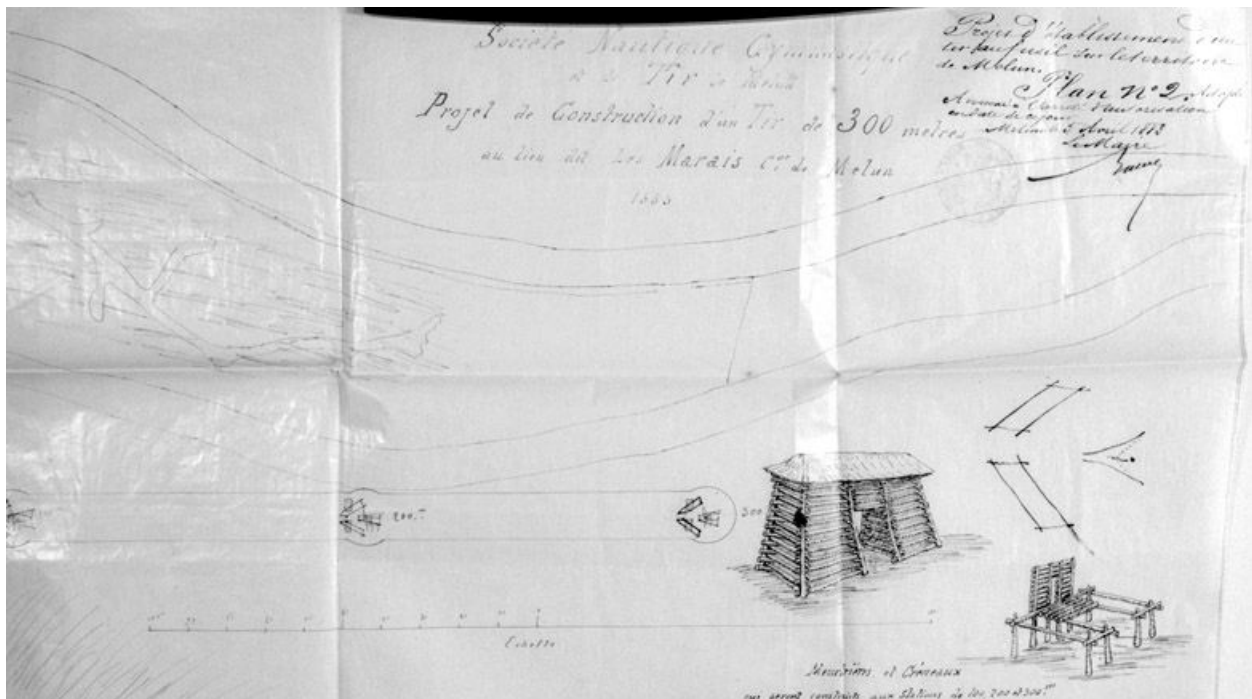 Société Nautique Gymnastique
et de Tir de Melun
Projet de Construction d'un Tir de 300 metres
au lieu dit Les Marais Cne de Melun
Projet d'établissement d'un
tir au fusil sur le territoire
de Melun.
Plan n° 2. Adopté
Annexé à l'arrêté d'autorisation
en date de ce jour
Melun le 5 Avril 1883
Le Maire
200 m
300
Echelle
Meurtrières et Créneaux
qui seront construits aux Stations de 100, 200 et 300 m